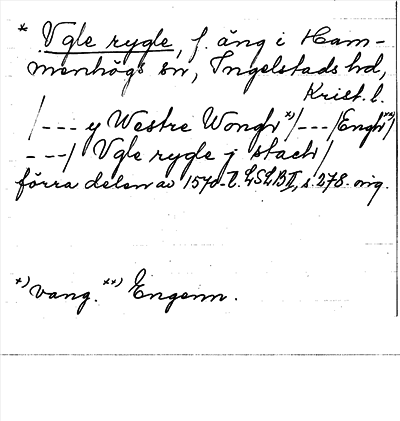 * Vgle rygle, f. äng i Ham-
menhögs sn, Ingelstads hd,
Krist. l.
/--- y Westre Wongh *)/---/Engh **)/
---/ Vgle rygle j stach/
förra delen av 1570-t. LSLB II, s. 278. orig.
*) vang. **) Engenn.